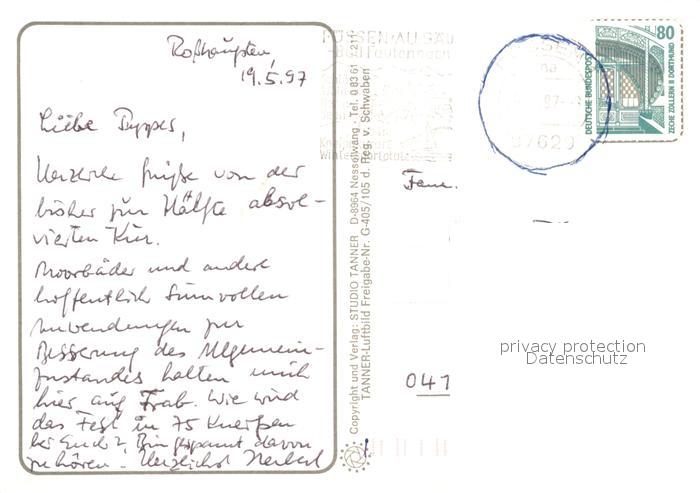 Roßhaupten
19.5.97
Liebe Puppes,
Herzliche Grüße von der
bisher zur Hälfte absol-
vierten Kur.
Moorbäder und andere
hoffentlich sinnvollen
Anwendungen zur
Besserung des Allgemein-
zustandes halten mich
hier auf Trab. Wie wird
das Fest in 75 Kneipen
bei Euch? Bin gespannt davon
zu hören. Herzlichst Herbert
FÜSSEN ALLGÄU
Bad Faulenbach
Wintersportplatz
87629
80
DEUTSCHE BUNDESPOST
ZECHE ZOLLERN II DORTMUND
Copyright und Verlag: STUDIO TANNER D-8964 Nesselwang · Tel. 0 83 61
TANNER-Luftbild Freigabe-Nr. G-405/105 d. Reg. v. Schwaben
Fam.
041
privacy protection
Datenschutz